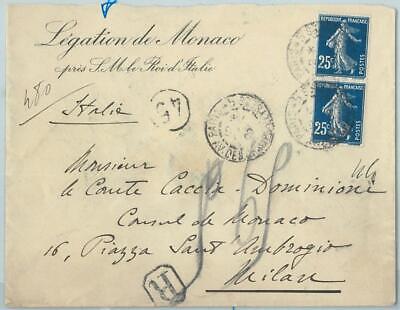 Légation de Monaco
près S.M. le Roi d'Italie
480
Italie
45
RÉPUBLIQUE FRANÇAISE
25c
POSTES
RÉPUBLIQUE FRANÇAISE
25c
POSTES
Monsieur
le Comte Caccia-Dominioni
Consul de Monaco
16, Piazza Sant Ambrogio
Milan
R